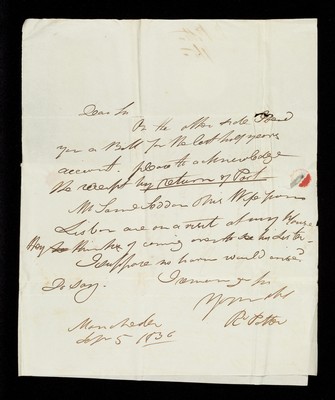 Dear Sir
On the other side I send
you a Bill for the last half years
account. please to acknowledge
the receipt by return of Post
Mr Sam & his Wife from
Lisbon are on a visit at my House
they think of coming over to see his sister -
I suppose no
to say. I remain Dr Sir
Yours
Rd Potter
Manchester
Sepr 5 1836